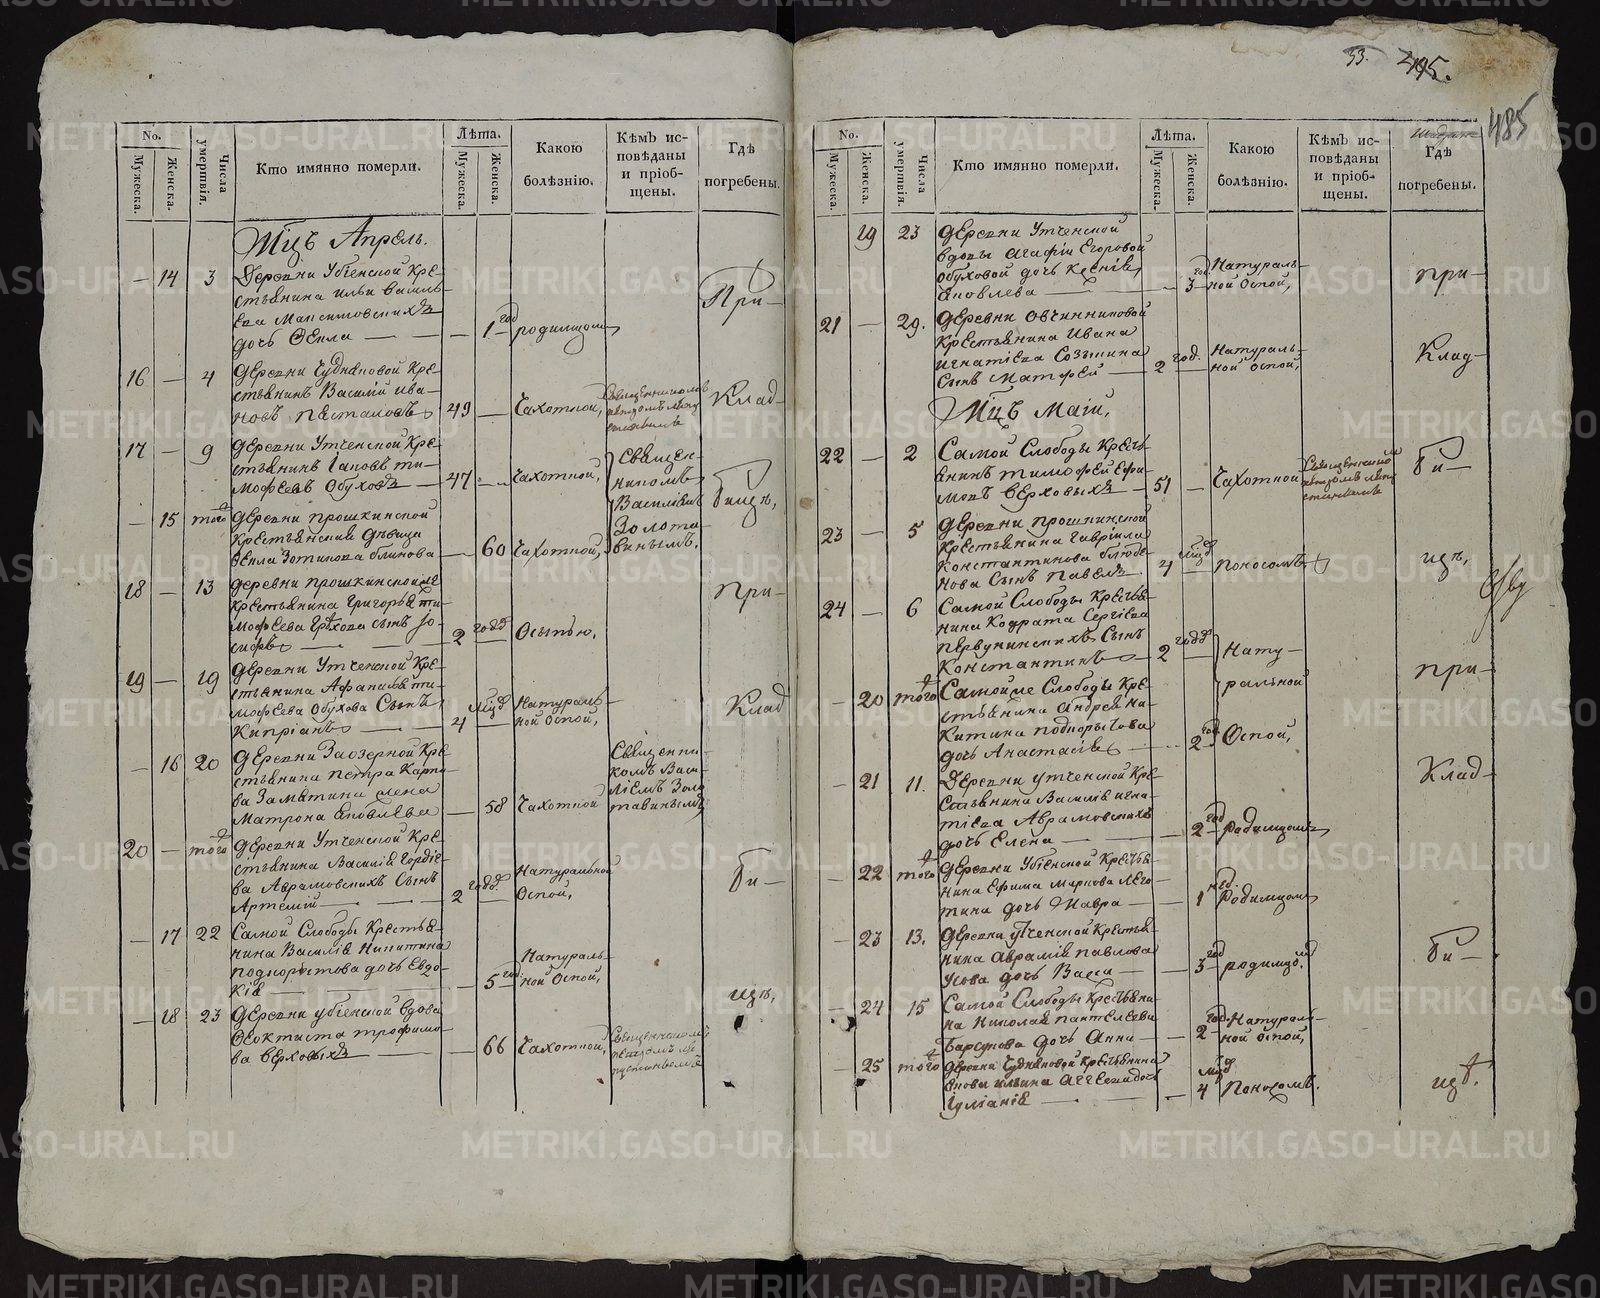 53. 295.
485
No.
Мужеска.
Женска.
Числа умертвiя.
Кто имянно померли.
Лѣта.
Мужеска.
Женска.
Какою болѣзнiю.
Кѣмъ исповѣданы и прiобщены.
Гдѣ погребены.
Мцъ Апрель.
14 3 Деревни Убiенской кре-
стьянина ильи василь-
ева Максимовскихъ
дочь Фекла 1 год родимцомъ
При-
16 4 деревни Чудиновой кре-
стьянинъ Василiй ива-
новъ 49 Чахотною,
Клад-
17 9 деревни Утченской кре-
стьянинъ Iаковъ ти-
мофеевъ Обуховъ 47 Чахотной,
Священ-
никомъ
Василiемъ
Золота-
винымъ.
бищѣ,
15 того деревни прошкинской
крестьянская дѣвица
Фекла Зотикова блинова 60 Чахотной,
18 13 деревни прошкинской
крестьянина Григорья ти-
мофеева сынъ Iо-
сифъ 2 годъ Осыпью.
При-
19 19 деревни Утченской кре-
стьянина Афанасья ти-
мофеева Обухова Сынъ
Кипрiанъ 4 мцд Натураль-
ной Оспой,
Клад
16 20 деревни Заозерной кре-
стьянина петра карпо-
ва Замятина жена
Матрона Яковлева 58 Чахотной
Священни-
комъ Васи-
лiемъ Золо-
тавинымъ
20 того деревни Утченской кре-
стьянина Василiя Гордiе-
ва Аврамовскихъ Сынъ
Артемiй 2 годъ Натуральной
Оспой,
би-
17 22 Самой Слободы Крестья-
нина Василiя Никитина
подкорытова дочь Евдо-
кiя 5 год Натураль-
ной Оспой,
щѣ,
18 23 деревни убiенской вдова
Феоктиста трофимо-
ва Верховыхъ 66 Чахотной,
No.
Мужеска.
Женска.
Числа умертвiя.
Кто имянно померли.
Лѣта.
Мужеска.
Женска.
Какою болѣзнiю.
Кѣмъ исповѣданы и прiобщены.
Гдѣ погребены.
19 23 деревни Утченской
вдовы Агафiи Егоровой
Обуховой дочь Ксенiя
Яковлева 3 год Натураль-
ной Оспой,
при-
21 29. деревни Овчинниковой
крестьянина Ивана
игнатiева Созыкина
Сынъ Матфей 2 год. Натураль-
ной Оспой,
Клад-
Мцъ Маiи,
22 2 Самой Слободы Кресть-
янинъ тимофей Ефи-
мовъ Верховыхъ 51 Чахотной
би-
23 5 деревни прошкинской
крестьянина гаврiила
Константинова
Сынъ Павелъ 4 мцд Поносомъ
щѣ,
24 6 Самой Слободы Крестья-
нина Кодрата Сергiева
первунинскихъ Сынъ
Константинъ 2 годъ Нату-
ральной
20 того Самой же Слободы Кре-
стьянина Андрея ни-
китина подкорытова
дочь Анастасiя 2 год Оспой,
при-
21 11. Деревни утченской Кре-
стьянина Василiя игна-
тiева Аврамовскихъ
дочь Елена 2 год Родимцомъ
Клад-
22 того деревни Убiенской Крестья-
нина Ефима Маркова
дочь Мавра 1 нед. Родимцомъ
23 13. деревни утченской Крестья-
нина Аврамiя павлова
Усова дочь Васса 3 год родимцом
би-
24 15 Самой Слободы крестьяни-
на Николая пантелеева
Барсукова дочь Анна 2 год Натураль-
ной оспой,
25 того деревни Чудиновой крестьянина
дочь
Iулiанiя 4 мцд Поносомъ.
щѣ.
METRIKI.GASO-URAL.RU